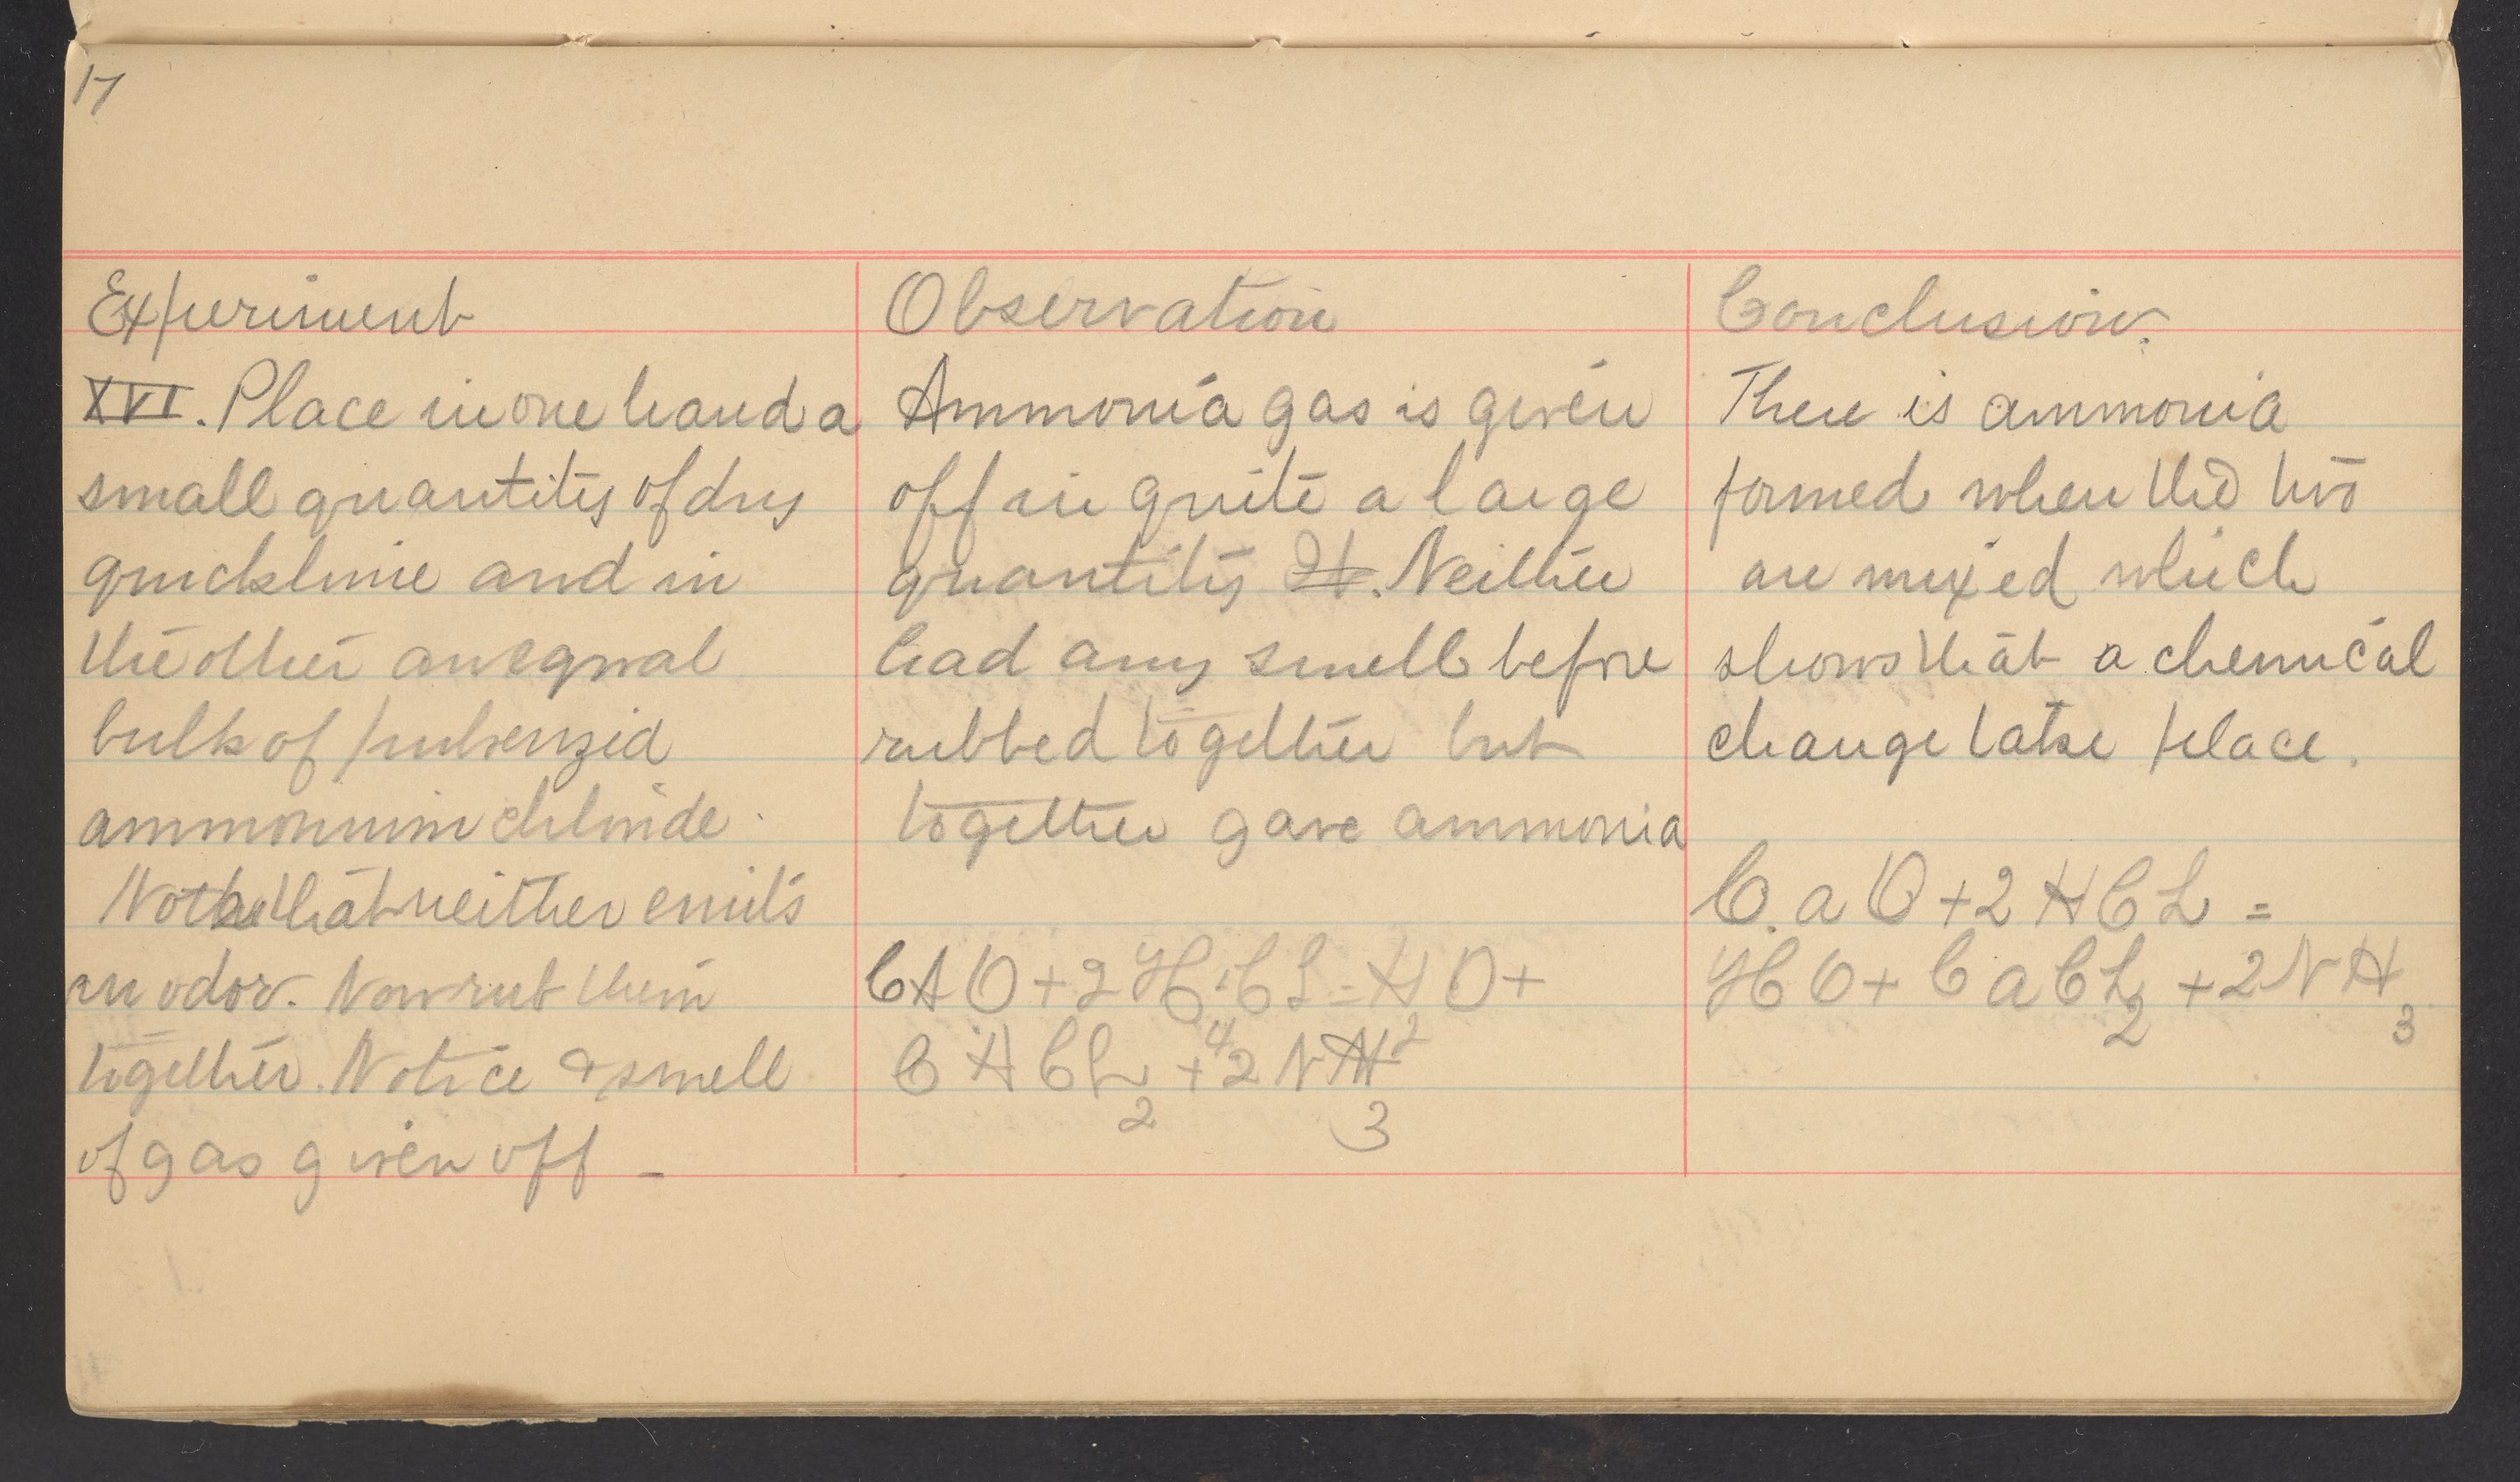 17
Experiment
XVI. Place in one hand a
small quantity of dry
quicklime and in
the other an equal
bulk of pulverized
ammonium chloride.
Note that neither emits
an odor. Now rub them
together. Notice & smell
of gas given off -
Observation
Ammonia gas is given
off in quite a large
quantity It. Neither
had any smell before
rubbed together but
together gave ammonia
CAO + 2 H CL = H O +
4 2
C A CL + 2 N H
2 3
Conclusion.
There is ammonia
formed when the two
are mixed which
shows that a chemical
change take place.
C. a O + 2 H C L =
H O + C a C L2 + 2 N H3